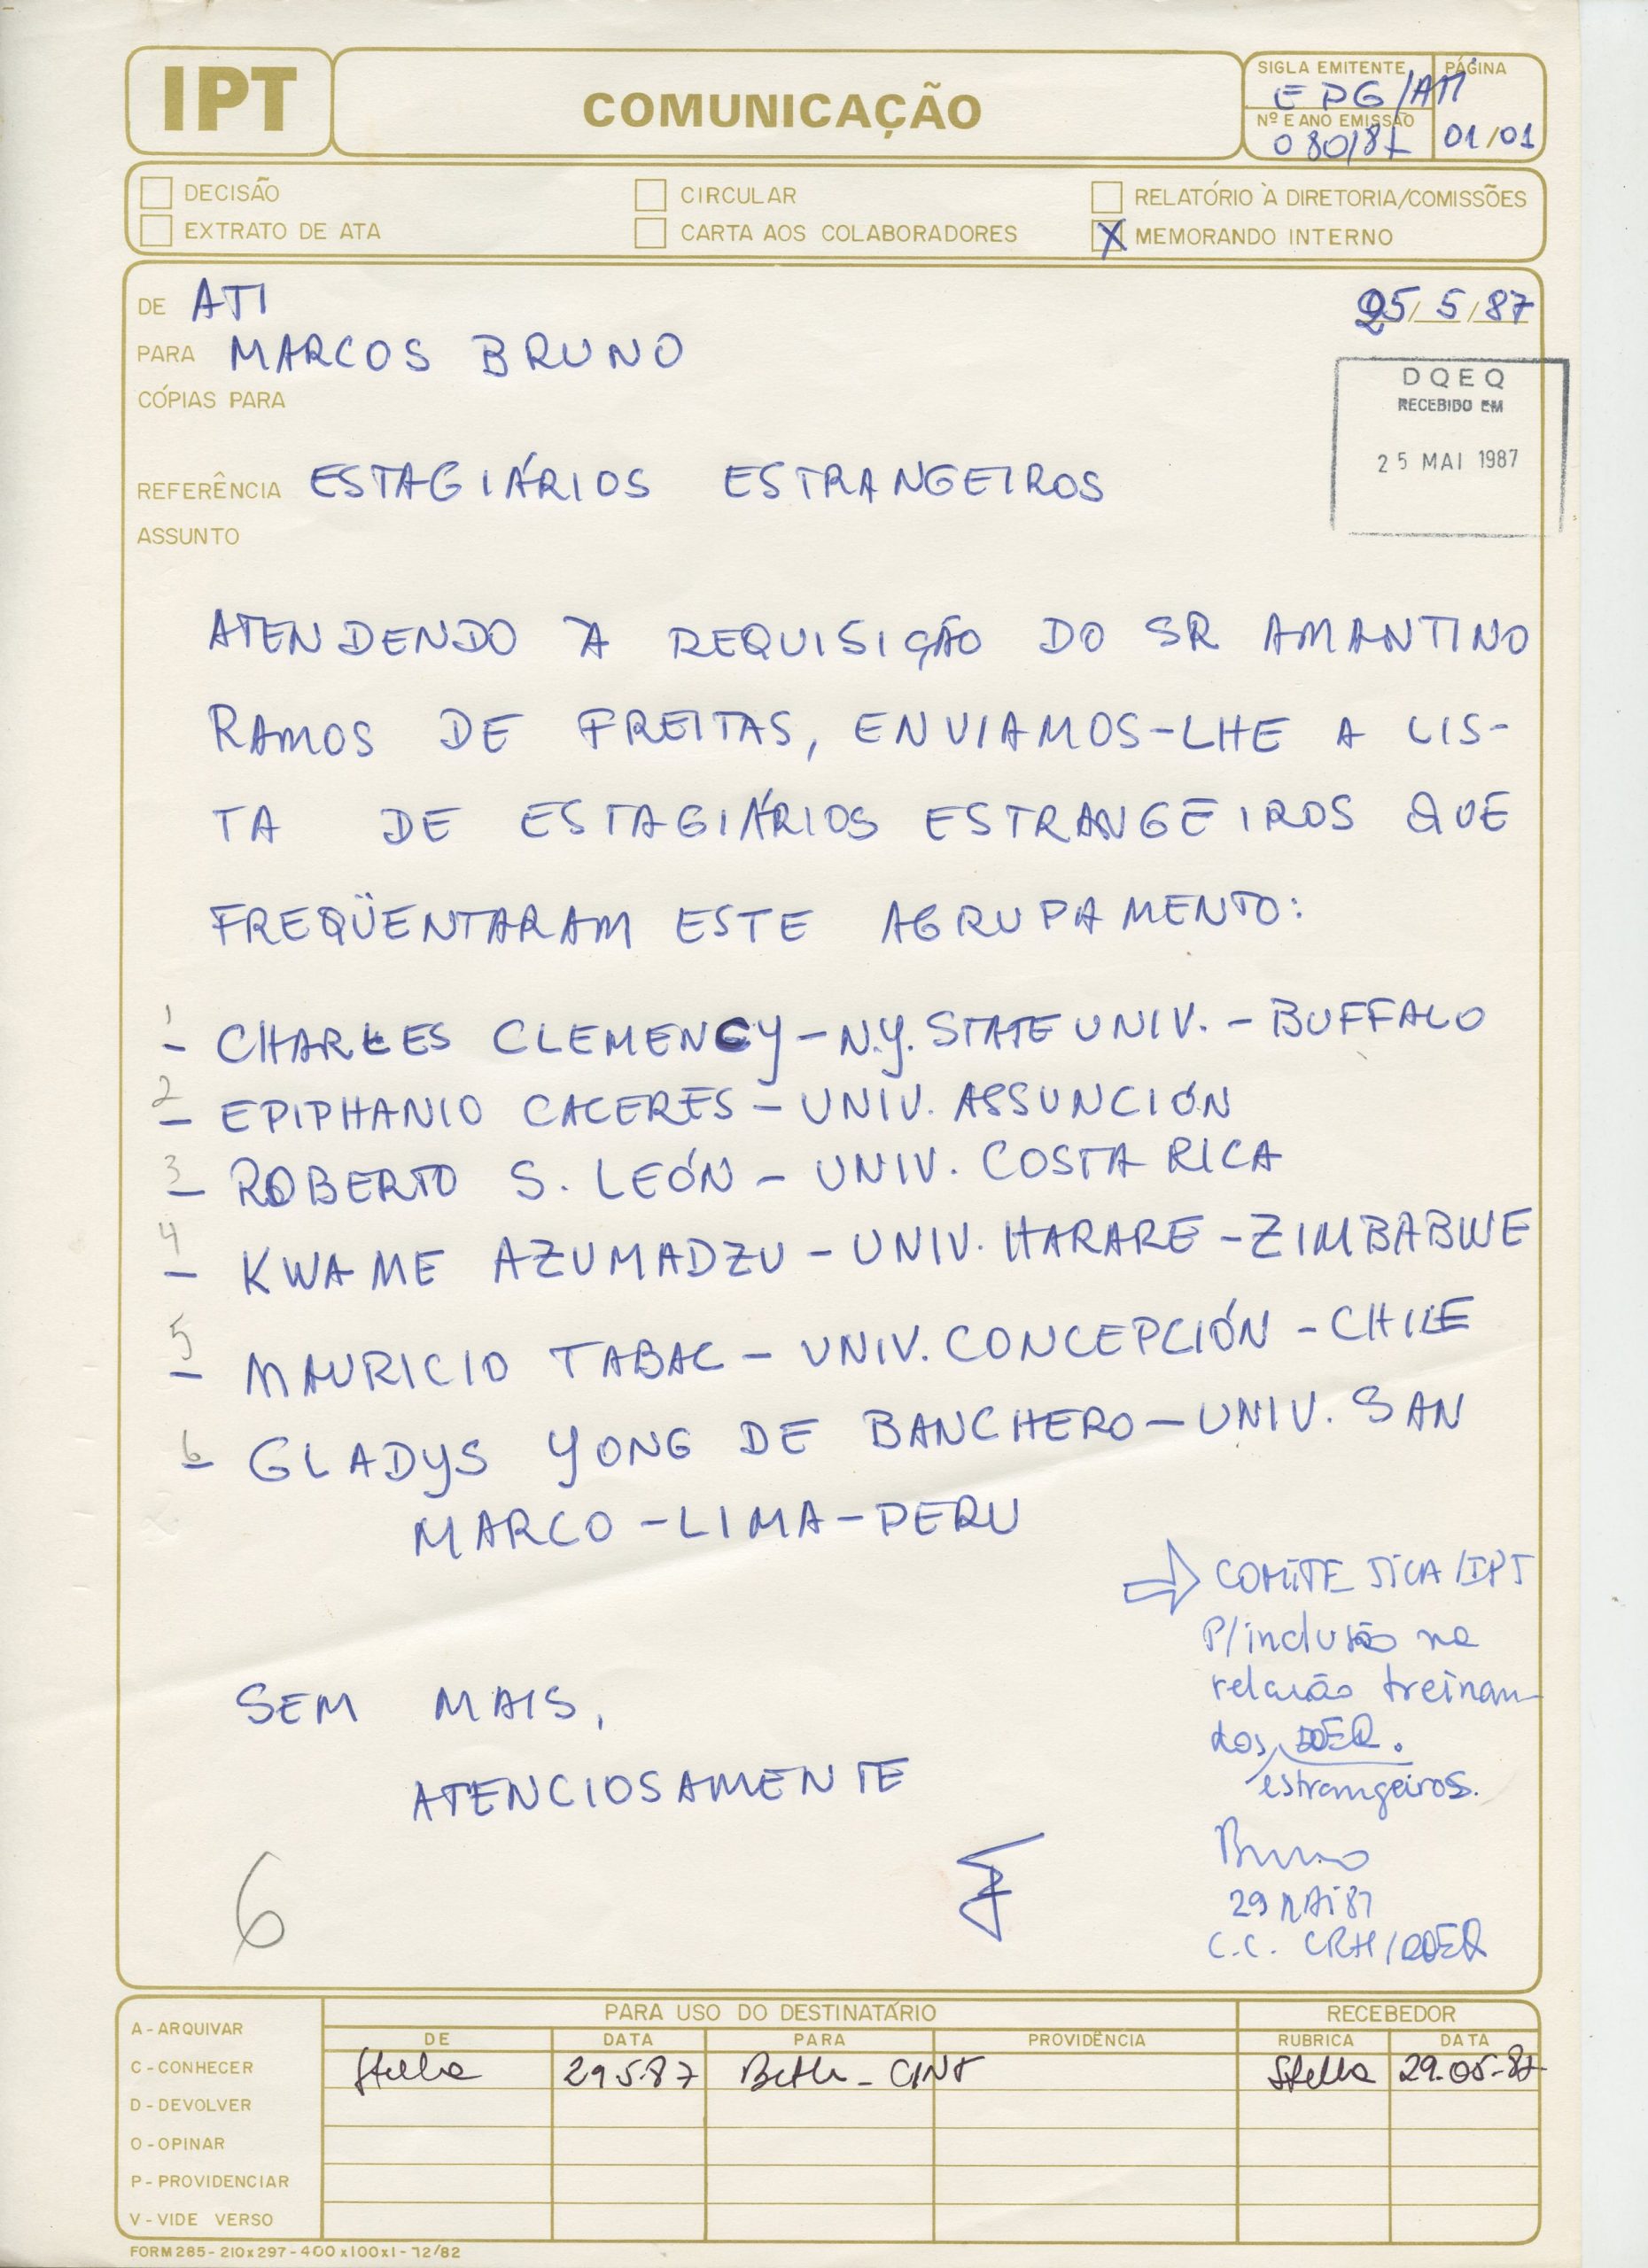 IPT
COMUNICAÇÃO
SIGLA EMITENTE
EPG/ATI
Nº E ANO EMISSÃO
080/87
PÁGINA
01/01
DECISÃO
EXTRATO DE ATA
CIRCULAR
CARTA AOS COLABORADORES
RELATÓRIO À DIRETORIA/COMISSÕES
X MEMORANDO INTERNO
DE ATI
25/5/87
PARA MARCOS BRUNO
CÓPIAS PARA
DQEQ
RECEBIDO EM
25 MAI 1987
REFERÊNCIA ESTAGIÁRIOS ESTRANGEIROS
ASSUNTO
ATENDENDO À REQUISIÇÃO DO SR AMANTINO
RAMOS DE FREITAS, ENVIAMOS-LHE A LIS-
TA DE ESTAGIÁRIOS ESTRANGEIROS QUE
FREQÜENTARAM ESTE AGRUPAMENTO:
1 - CHARLES CLEMENCY - N.Y. STATE UNIV. - BUFFALO
2 - EPIPHANIO CACERES - UNIV. ASSUNCIÓN
3 - ROBERTO S. LEÓN - UNIV. COSTA RICA
4 - KWAME AZUMADZU - UNIV. HARARE - ZIMBABWE
5 - MAURICIO TABAC - UNIV. CONCEPCIÓN - CHILE
6 - GLADYS YONG DE BANCHERO - UNIV. SAN
MARCO - LIMA - PERU
⇨ COMITE JICA/IPT
P/inclusão na
relação treinan-
dos
estrangeiros.
SEM MAIS,
ATENCIOSAMENTE
6
Bruno
29 MAI 87
C.C. CRH/
PARA USO DO DESTINATÁRIO
RECEBEDOR
A - ARQUIVAR
C - CONHECER
D - DEVOLVER
O - OPINAR
P - PROVIDENCIAR
V - VIDE VERSO
DE DATA PARA PROVIDÊNCIA RUBRICA DATA
Stella 29.5.87 Beth - CINT Stella 29.05.87
FORM 285 - 210x297 - 400x100x1 - 12/82